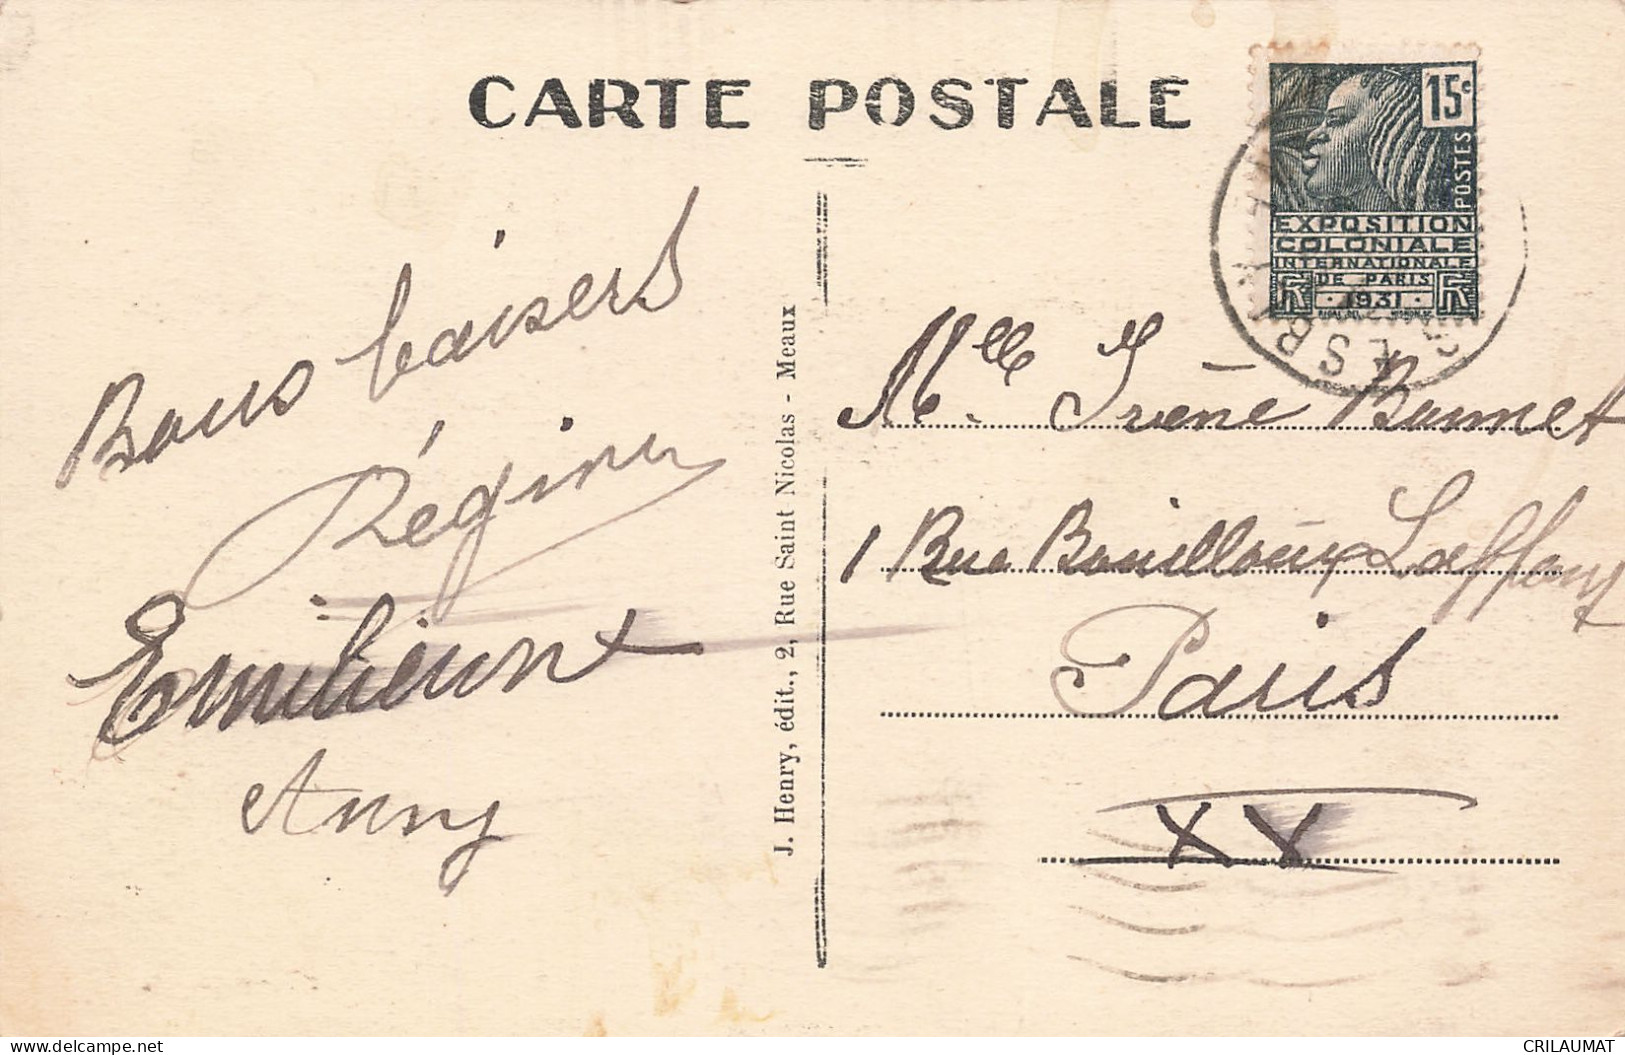 CARTE POSTALE
15c
POSTES
EXPOSITION
COLONIALE
INTERNATIONALE
DE PARIS
RF · 1931 · RF
Bons baisers
Régine
Emilienne
Anny
J. Henry, édit., 2, Rue Saint Nicolas - Meaux
Mlle Irène
1 Rue Bouilloux Laffont
Paris
XV
CRILAUMAT